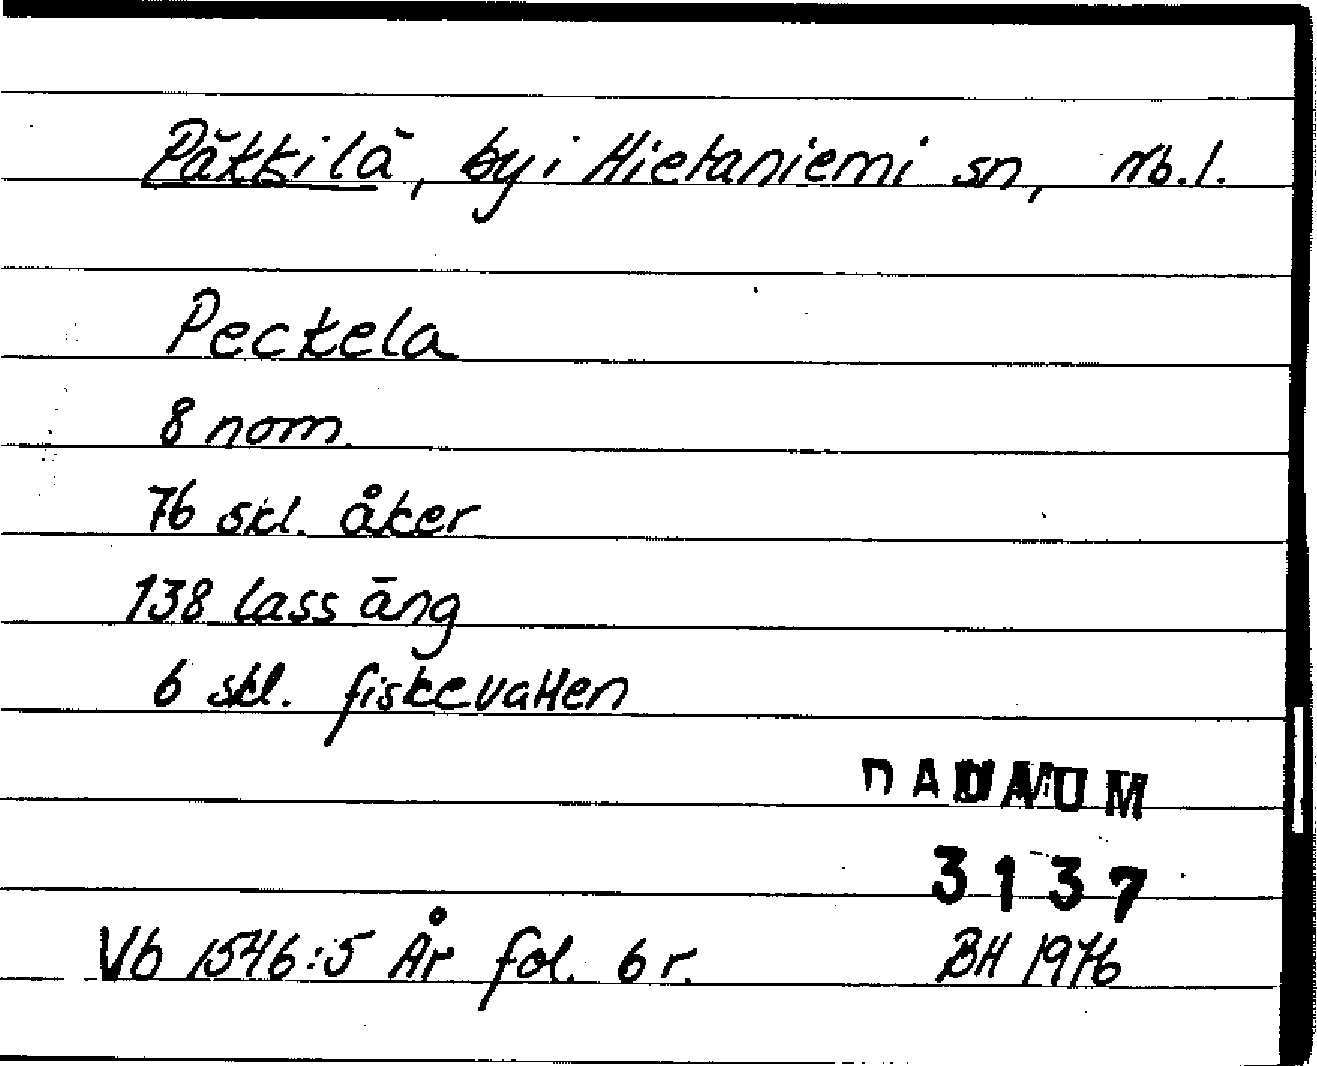 Päkkilä, by i Hietaniemi sn, Nb.l.
Peckela
8 nom.
76 skl. åker
138 lass äng
6 skl. fiskevatten
DADNUM
3137
Vb 1546:5 År fol. 6r. BH 1976